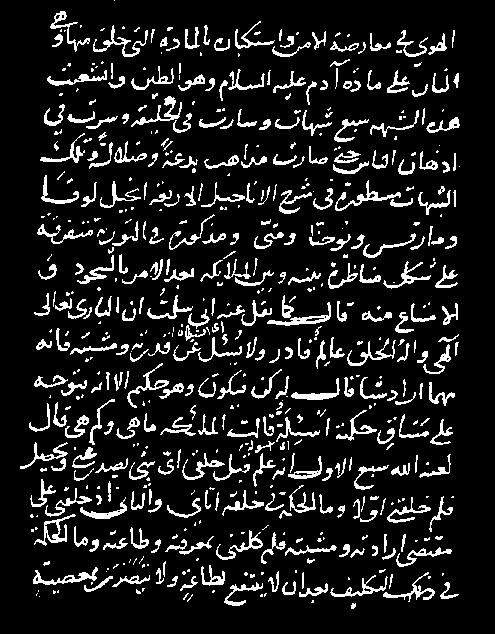 الهوى في معارضة الامر واستكباره بالمادة التي خلق منها وهي
النار على مادة آدم عليه السلام وهو الطين وانشعبت
هذه الشبهه سبع شبهات وسارت في الخليقة وسرت في
اذهان الناس حتى صارت مذاهب بدعة وضلالة وتلك
الشبهات مسطورة في شرح الاناجيل الاربعة انجيل لوقا
ومارقوس ويوحنا ومتى ومذكورة في التورة متفرقة
على شكل مناظرة بينه وبين الملايكه بعد الامر بالسجود و
الامتناع منه قال كما نقل عنه اني سلمت ان البارى تعالى
الهي واله الخلق عالم قادر ولا يسئل عن قدرته ومشيته فانه
مهما اراد شيا قال له كن فيكون وهو حكيم الا انه يتوجه
على مساق حكمته اسئلة قالت الملئكه ما هي وكم هي قال
لعنه الله سبع الاول انه علم قبل خلقي اى شئ يصدر عني ويحصل
فلم خلقني اولا وما الحكمة في خلقه اياى والثاني اذ خلقني على
مقتضى ارادته ومشيته فلم كلفني بمعرفته وطاعته وما الحكمة
في ذلك التكليف بعد ان لا ينتفع بطاعة ولا يتضرر بمعصية